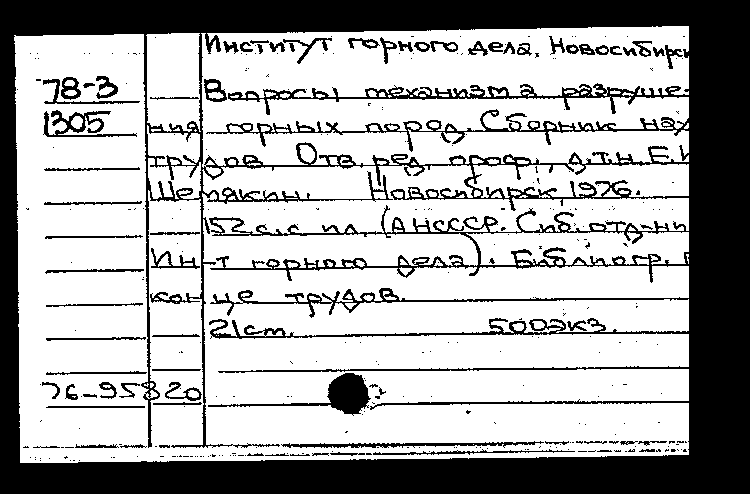 Институт горного дела, Новосибирск
78-3 Вопросы механизма разруше-
1305 ния горных пород. Сборник нау
трудов. Отв. ред. проф., д.т.н. Е.И
Шемякин. Новосибирск, 1976.
152 с. с ил. (АН СССР. Сиб. отд-ни
Ин-т горного дела). Библиогр. в
конце трудов.
21 см. 500 экз.
76-95820